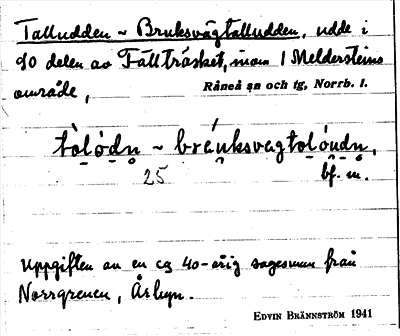 Talludden ~ Bruksvägtalludden, udde i
SO delen av Fällträsket, inom 1 Meldersteins
område,
Råneå sn och tg, Norrb. l.
tòlo̱dn ~ bráuksvegtolóudn,
25 bf. m.
Uppgiften av en ca 40-årig sagesman från
Norrgrenen, Årbyn.
EDVIN BRÄNNSTRÖM 1941